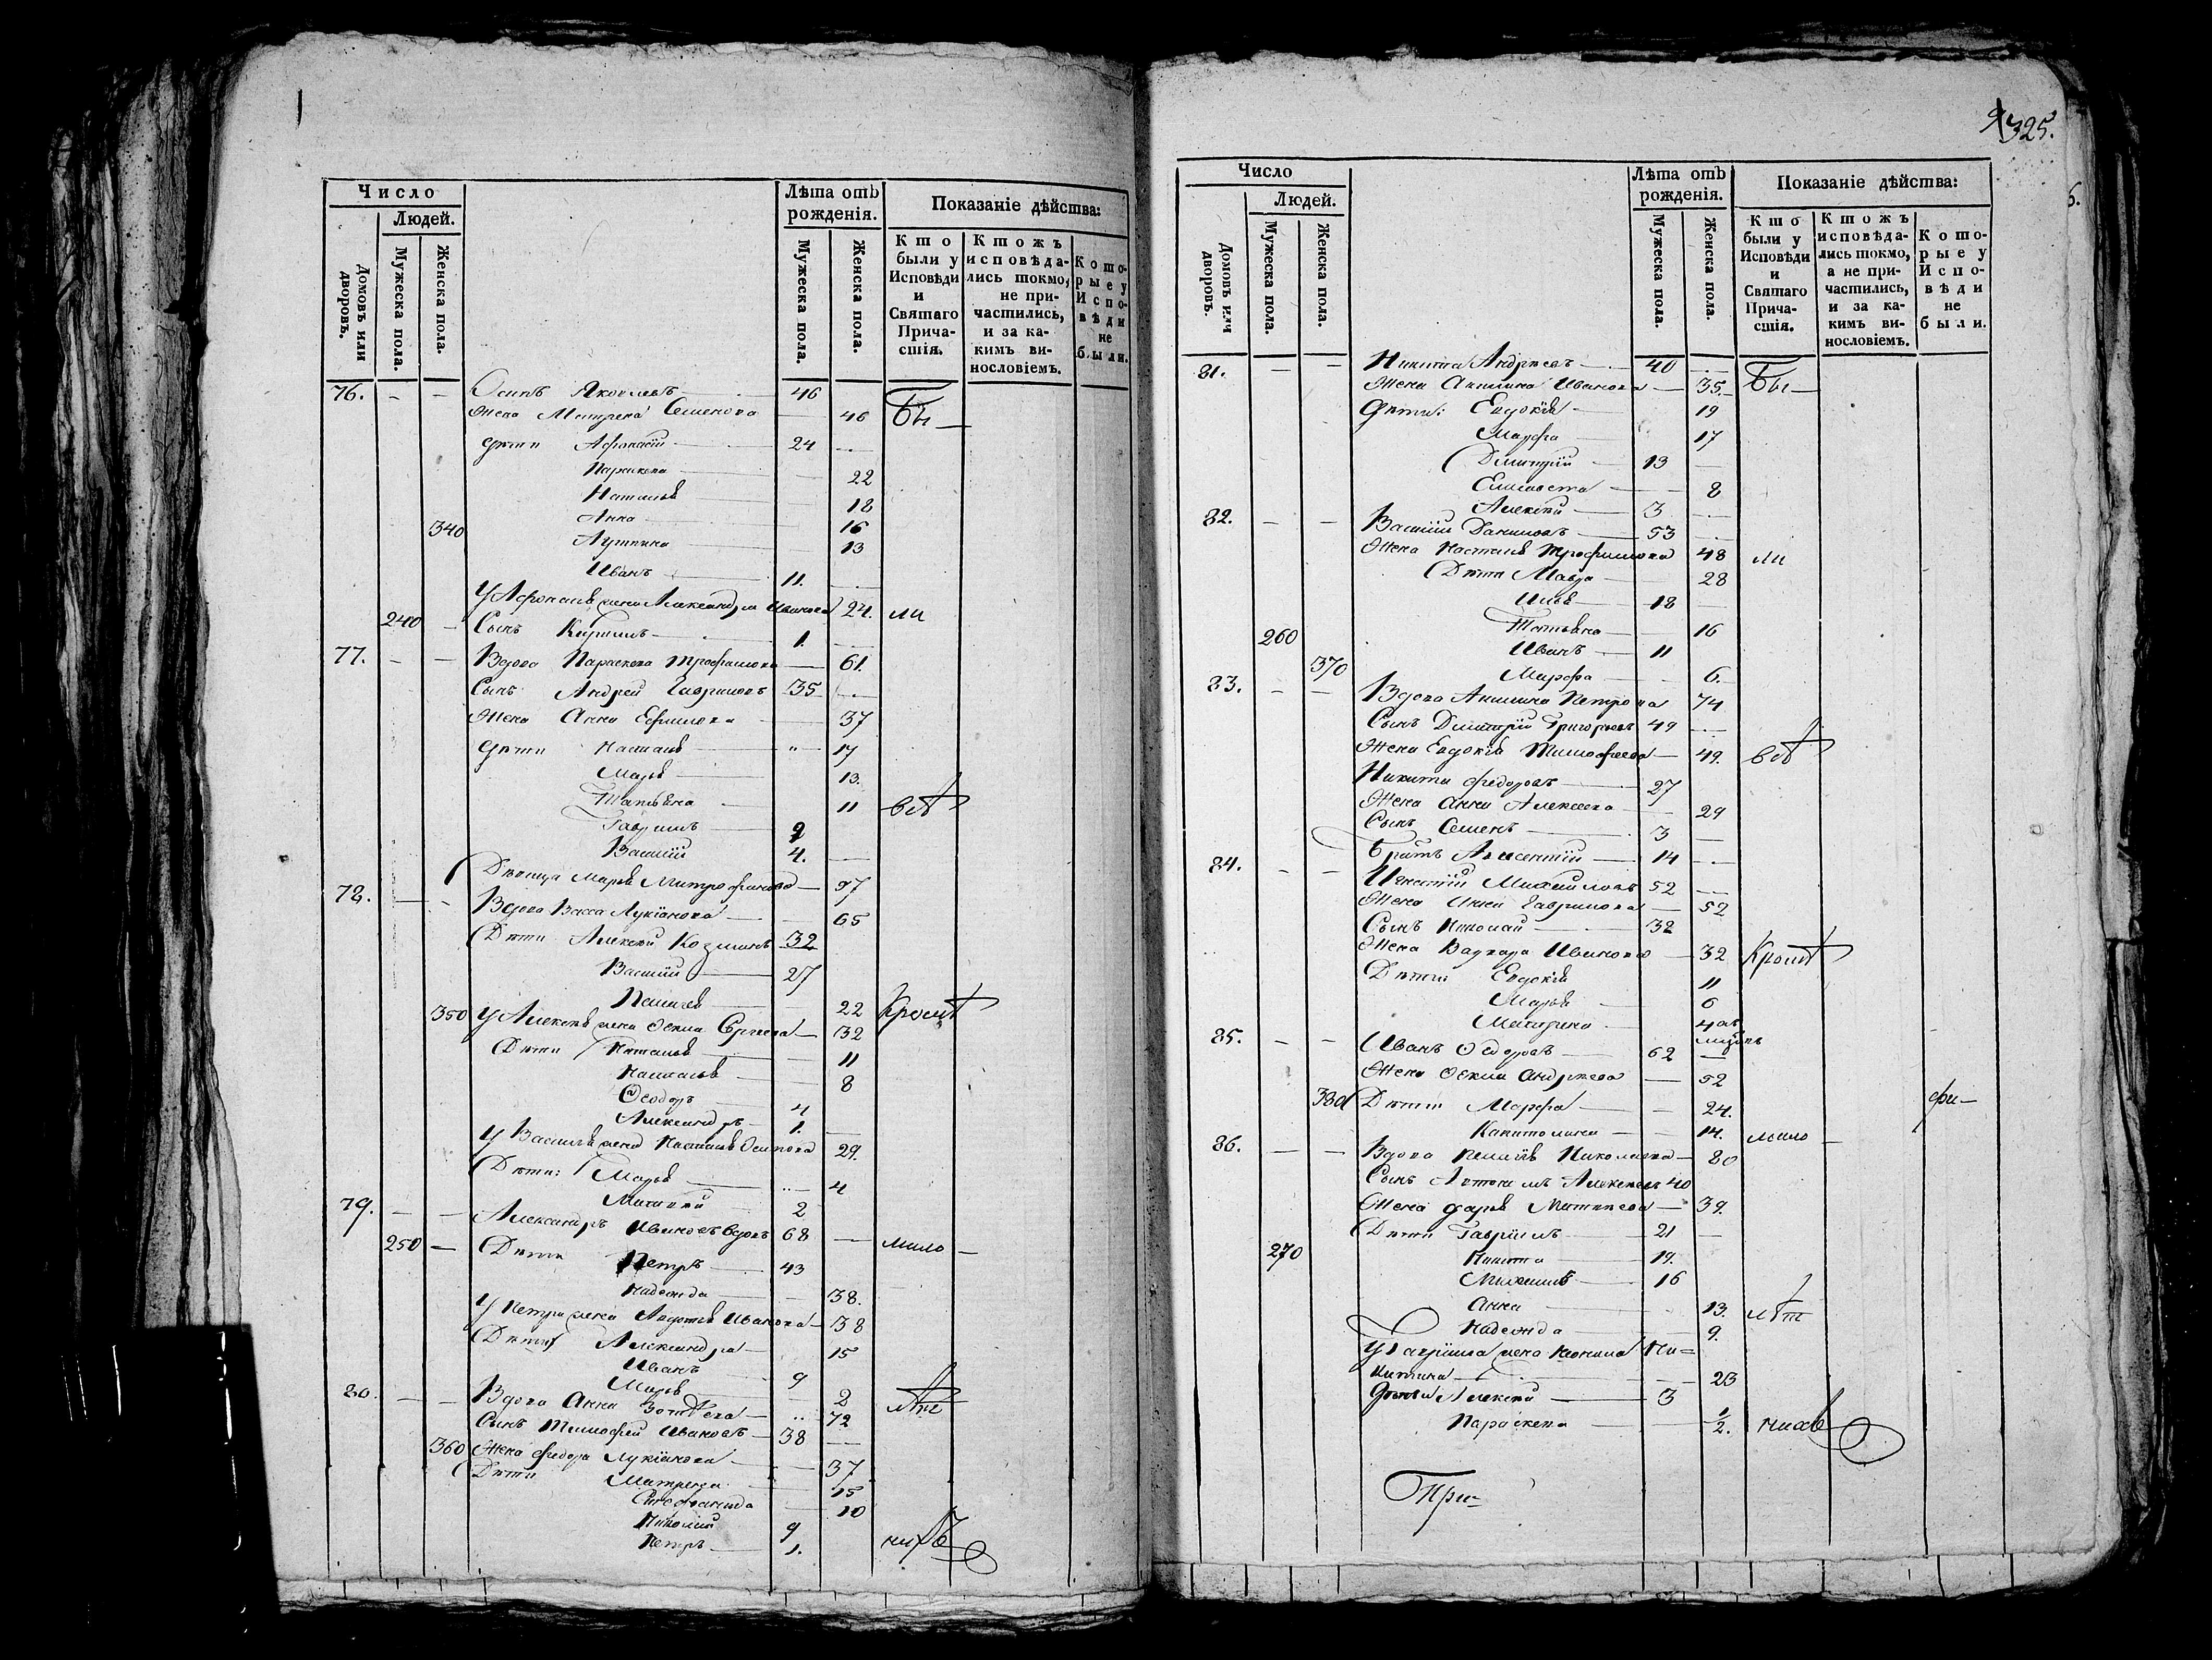 325.
Число
Людей.
Домовъ или дворовъ.
Мужеска пола.
Женска пола.
Лѣта отъ рожденія.
Мужеска пола.
Женска пола.
Показаніе дѣйства:
Кто были у Исповѣди и Святаго Причастія.
Ктожъ исповѣдались токмо, не причастились, и за какимъ винословіемъ.
Которые у Исповѣди не были.
76. - - Осипъ Яковлевъ 46
Жена Матрена Семенова 46 Бы
дѣти Афонасій 24
Параскева 22
Наталья 18
340 Анна 16
13
Иванъ 11.
У Афонасія жена Александра Иванова 24. ли
240 Сынъ Кирилъ 1.
77. - - Вдова Параскева Трофимова 61.
Сынъ Андрей Гавриловъ 35
Жена Анна Ефимова 37
дѣти Наталья 17
Марья 13.
Татьяна 11 всѣ
Гаврилъ 9
Василій 4.
Дѣвица Марья Митрофанова
78. - - Вдова Васса Лукіанова 65
Дѣти Алексѣй Козминъ 32
Василій 27
Пелагея 22 Кромѣ
350 У Алексѣя жена Фекла Сергѣева 32
Дѣти Наталья 11
Наталья 8
Ѳеодоръ 4
Александръ 1.
У Василья жена Наталья Осипова 29.
Дѣти: Марья 4
2
79. - - Александръ Ивановъ вдовъ 68
250 - Дѣти Петръ 43 мало
Надежда 38.
У Петра жена Авдотья Иванова 38
Дѣти Александра 15
Иванъ 9
Марья 2
80. - - Вдова Анна 72 лѣт
Сынъ Тимофей Ивановъ 38
360 Жена Федора Лукіанова 37
Дѣти Матрена 15
Степанида 10
Николай 9
Петръ 1. нихъ
Число
Людей.
Домовъ или дворовъ.
Мужеска пола.
Женска пола.
Лѣта отъ рожденія.
Мужеска пола.
Женска пола.
Показаніе дѣйства:
Кто были у Исповѣди и Святаго Причастія.
Ктожъ исповѣдались токмо, а не причастились, и за какимъ винословіемъ.
Которые у Исповѣди не были.
81. - - Никита Андреевъ 40
Жена Акилина Иванова 35. Бы
дѣти: Евдокія 19
Марфа 17
Дмитрій 13
Елисавета 8
Алексѣй 3
82. - - Василій Даниловъ 53
Жена Наталья Трофимова 48 ли
Дѣти Мавра 28
Илья 18
Татьяна 16
260 Иванъ 11
370 Марфа 6.
83. - - Вдова Акилина Петрова 74
Сынъ Дмитрій Григорьевъ 49
Жена Евдокія Тимофеева 49. всѣ
Никита Федоровъ 27
Жена Анна Алексеева 29
Сынъ Семенъ 3
Братъ Авксентій 14
84. - - Игнатій Михайловъ 52
Жена Анна Гаврилова 52
Сынъ Николай 32
Жена Варвара Иванова 32 Кромѣ
Дѣти: Евдокія 11
Марья 6
85. - - Иванъ Ѳедоровъ 62
Жена Фекла Андреева 52
380 Дѣти Марфа 24.
Капитолина 14. мало
86. - - Вдова Пелагія Николаева 80
Сынъ Антонъ Алексѣевъ 40
Жена Дарья Матвеева 39.
Дѣти Гавріилъ 21
270 Никита 19.
Михаилъ 16
Анна 13. лѣт
Надежда 9.
У Гавріила жена Неонила Ни=
китина 23
Дѣти Алексѣй 3
Параскева 1/2. нихъ
При-